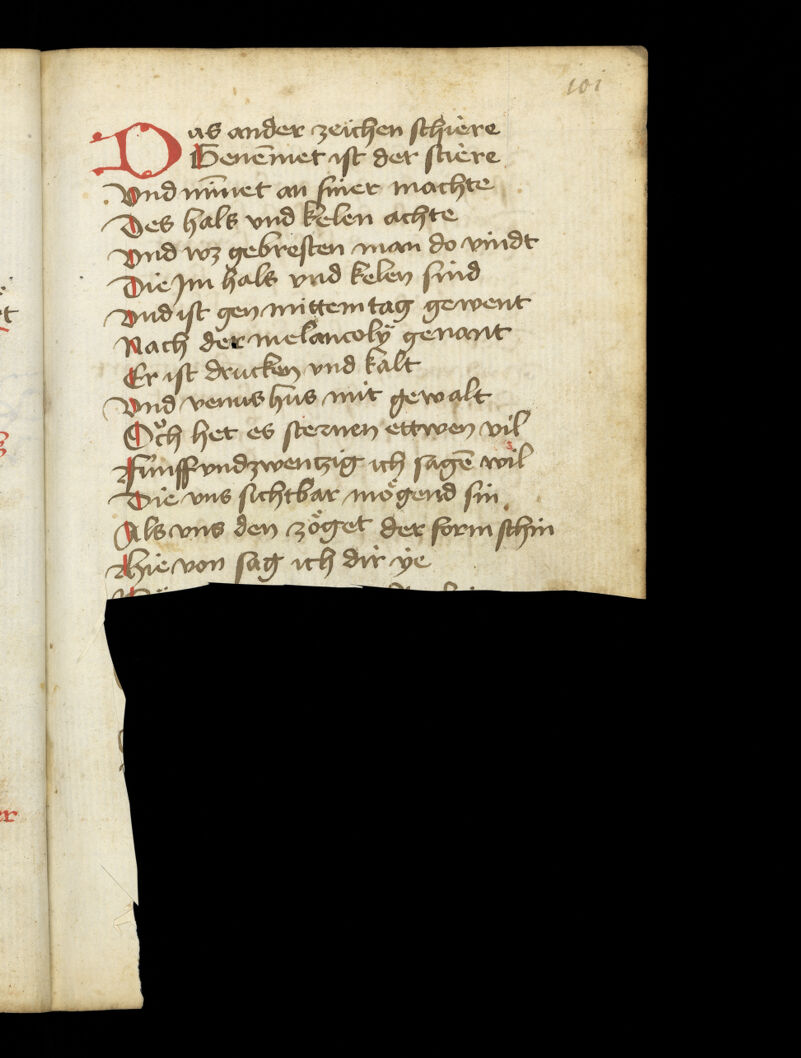 101
Das ander zeichen schiere
Genem̄et ist der stiere
Vnd nim̄et an siner machte
Des hals vnd kelen achte
Vnd wz gebresten man do vindt
Die Jm hals vnd kelen sind
Vnd ist gen mittemtag gewent
Nach der melancolÿ genant
Er ist drucken vnd kalt
Vnd venus hus mit gewalt
Oͮch het es sternen ettwen vil
Fúnff vnd zwentzig ich sagē wil
Die vns sichtbar moͤgend sin
Als vns den zoͤget der form schin
Hie von sag ich dir ÿe